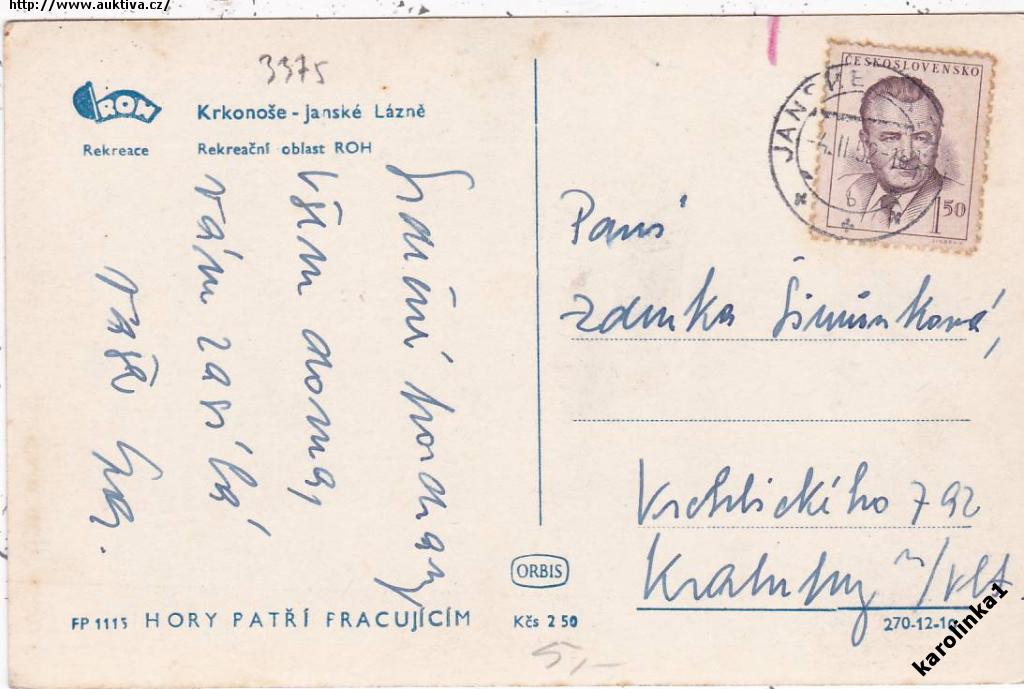 http://www.auktiva.cz/
3375
ROH
Krkonoše - Janské Lázně
Rekreace
Rekreační oblast ROH
Srdečné pozdravy
všem doma,
vám zasílá
Vaše
FP 1115 HORY PATŘÍ PRACUJÍCÍM
ORBIS
Kčs 2 50
5,-
ČESKOSLOVENSKO
1 50
JANSKÉ
Paní
Zdenka Šimůnková,
Vrchlického 792
Kralupy n/Vlt
270-12-10
karolinka1